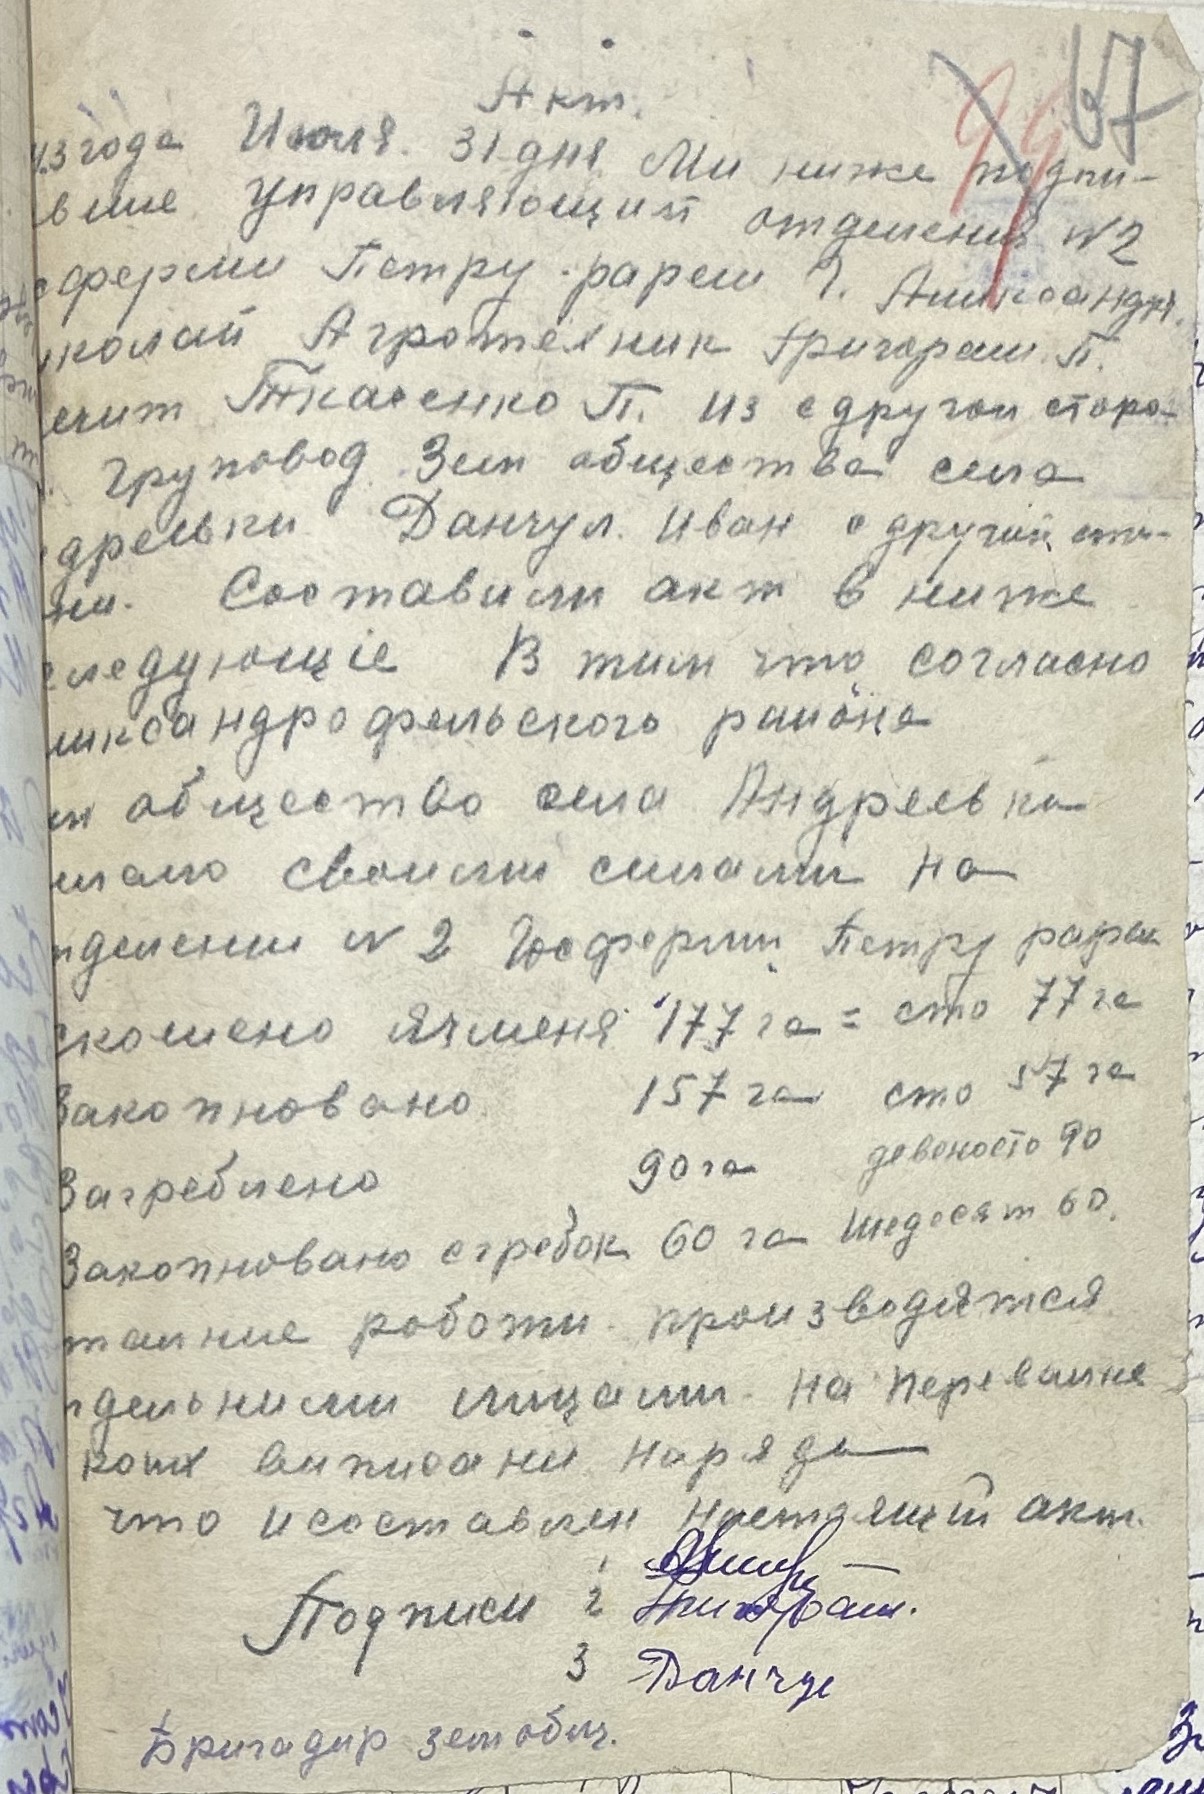 67
99
Акт.
43 года Июля. 31 дня Ми ниже подпи-
вшие управляющий отделения №2
сферми Петру-рареш Г. Александр.
иколай Агротехник Григораш. П.
Ткаченко П. из с другой сторо-
груповод Зем общества села
дреевки Данчул. Иван с другой сто-
ни. Составили акт в ниже
следующіе В тим что согласно
лександрофельского района
м общество села Андреевка
своими силами на
тделении №2 Госферми Петру рареш
скошено ячменя 177 га = сто 77 га
Закопновано 157 га сто 57 га
Загреблено 90 га девеносто 90
Закопновано згребок 60 га шедесят 60.
тальние роботи производятся
тдельними лицами на
коих виписани наряда
что и составлен настоящий акт.
Подписи 1
2 Григораш.
3 Данчул
Бригадир зем общ.